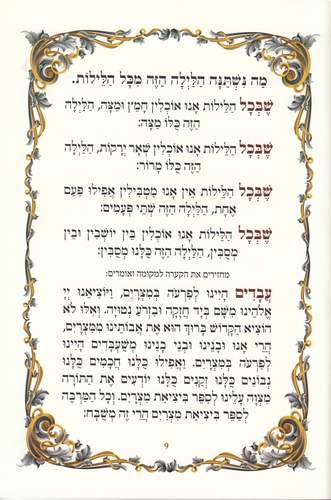 מַה נִּשְׁתַּנָּה הַלַּיְלָה הַזֶּה מִכָּל הַלֵּילוֹת.
שֶׁבְּכָל הַלֵּילוֹת אָנוּ אוֹכְלִין חָמֵץ וּמַצָּה, הַלַּיְלָה
הַזֶּה כֻּלּוֹ מַצָּה:
שֶׁבְּכָל הַלֵּילוֹת אָנוּ אוֹכְלִין שְׁאָר יְרָקוֹת, הַלַּיְלָה
הַזֶּה כֻּלּוֹ מָרוֹר:
שֶׁבְּכָל הַלֵּילוֹת אֵין אָנוּ מַטְבִּילִין אֲפִילוּ פַּעַם
אֶחָת, הַלַּיְלָה הַזֶּה שְׁתֵּי פְעָמִים:
שֶׁבְּכָל הַלֵּילוֹת אָנוּ אוֹכְלִין בֵּין יוֹשְׁבִין וּבֵין
מְסֻבִּין, הַלַּיְלָה הַזֶּה כֻּלָּנוּ מְסֻבִּין:
מחזירים את הקערה למקומה ואומרים:
עֲבָדִים הָיִינוּ לְפַרְעֹה בְּמִצְרָיִם, וַיּוֹצִיאֵנוּ יְיָ
אֱלֹהֵינוּ מִשָּׁם בְּיָד חֲזָקָה וּבִזְרֹעַ נְטוּיָה. וְאִלּוּ לֹא
הוֹצִיא הַקָּדוֹשׁ בָּרוּךְ הוּא אֶת אֲבוֹתֵינוּ מִמִּצְרַיִם,
הֲרֵי אָנוּ וּבָנֵינוּ וּבְנֵי בָנֵינוּ מְשֻׁעְבָּדִים הָיִינוּ
לְפַרְעֹה בְּמִצְרָיִם. וַאֲפִילוּ כֻּלָּנוּ חֲכָמִים כֻּלָּנוּ
נְבוֹנִים כֻּלָּנוּ זְקֵנִים כֻּלָּנוּ יוֹדְעִים אֶת הַתּוֹרָה
מִצְוָה עָלֵינוּ לְסַפֵּר בִּיצִיאַת מִצְרָיִם. וְכָל הַמַּרְבֶּה
לְסַפֵּר בִּיצִיאַת מִצְרַיִם הֲרֵי זֶה מְשֻׁבָּח:
9